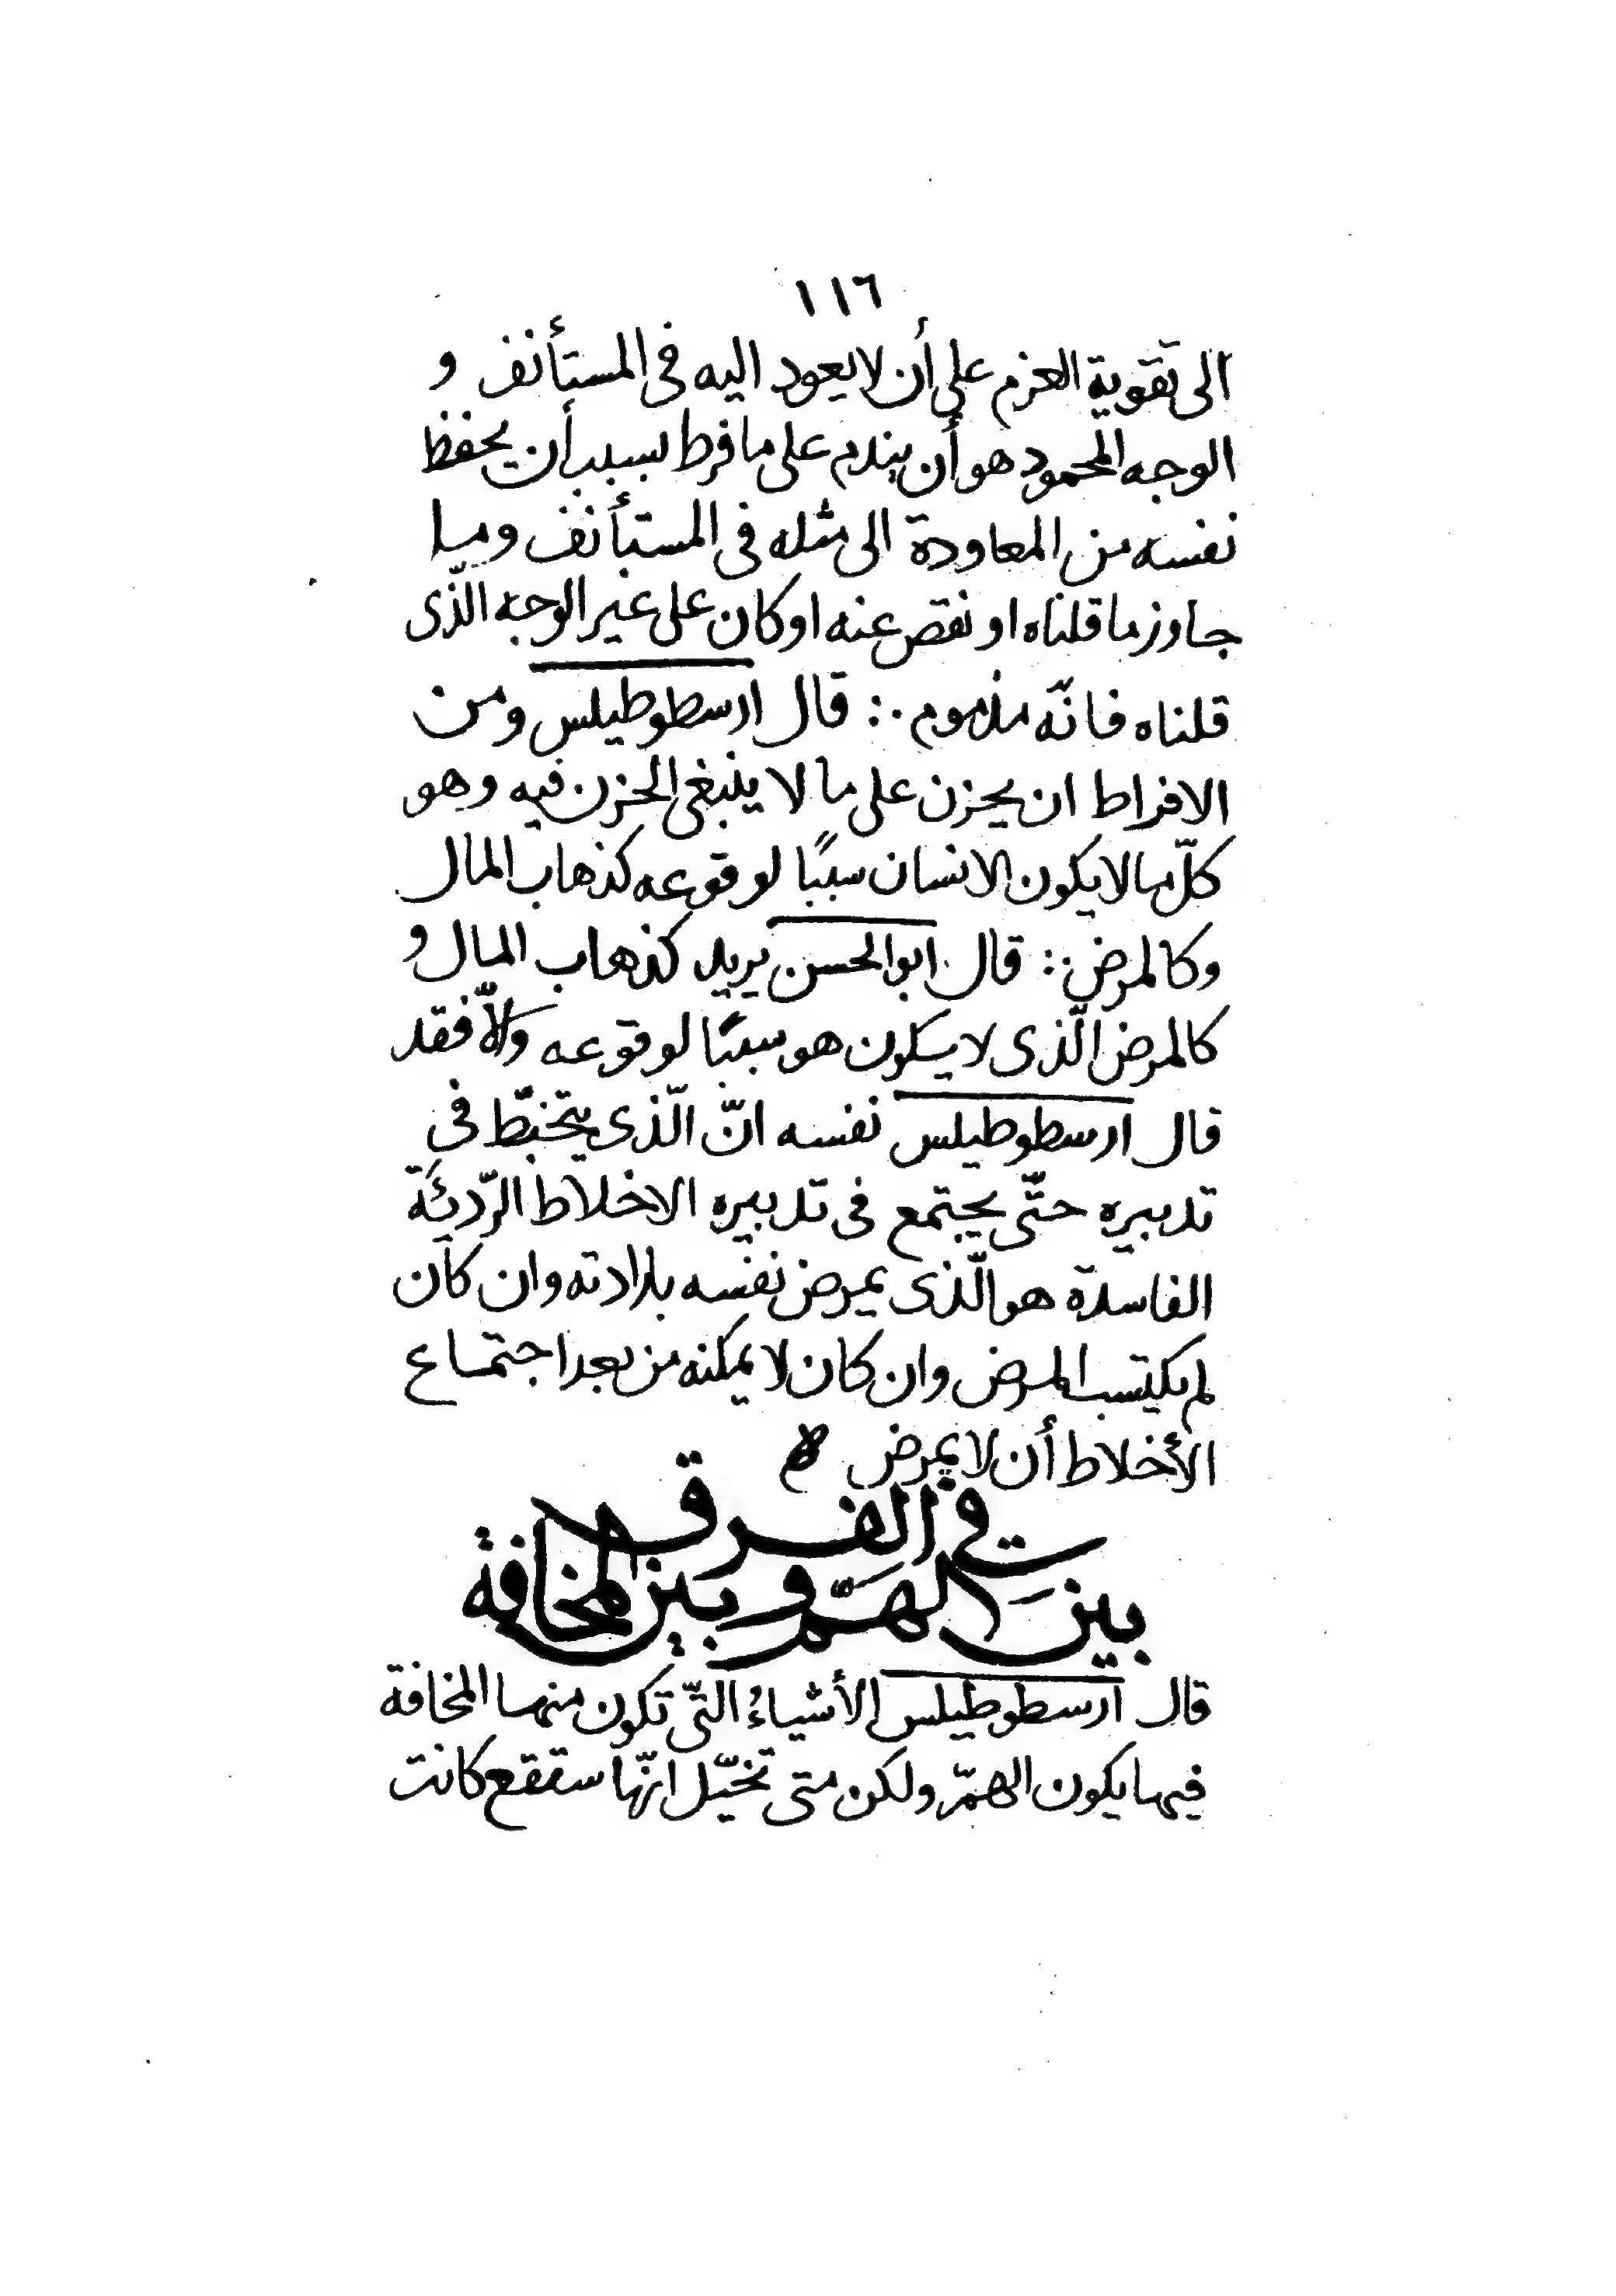 ١١٦
الى تقوية العزم على أن لا يعود اليه فى المستأنف و
الوجه المحمود هو أن يندم على ما فرط بسبب أن يحفظ
نفسه من المعاودة الى مثله فى المستأنف وما
جاوز ما قلناه او نقص عنه او كان على غير الوجه الّذى
قلناه فانّه مذموم ∴ قال ارسطوطيلس ومن
الافراط ان يحزن على ما لا ينبغى الحزن فيه وهو
كلّ ما لا يكون الانسان سببًا لوقوعه كذهاب المال
وكالمرض ∴ قال ابو الحسن يريد كذهاب المال و
كالمرض الّذى لا يكون هو سببًا لوقوعه والّا فقد
قال ارسطوطيلس نفسه انّ الّذى يتخبّط فى
تدبيره حتّى يجتمع فى تدبيره الاخلاط الرّديئة
الفاسدة هو الّذى يمرض نفسه بارادته وان كان
لم يكتسب المرض وان كان لا يمكنه من بعد اجتماع
الأخلاط أن لا يمرض
فى الفرق
بين الهمّ وبين المخافة
قال ارسطوطيلس الأشياءُ التّى تكون منها المخافة
فيها يكون الهمّ ولكن متى تخيّل انّها ستقع كانت